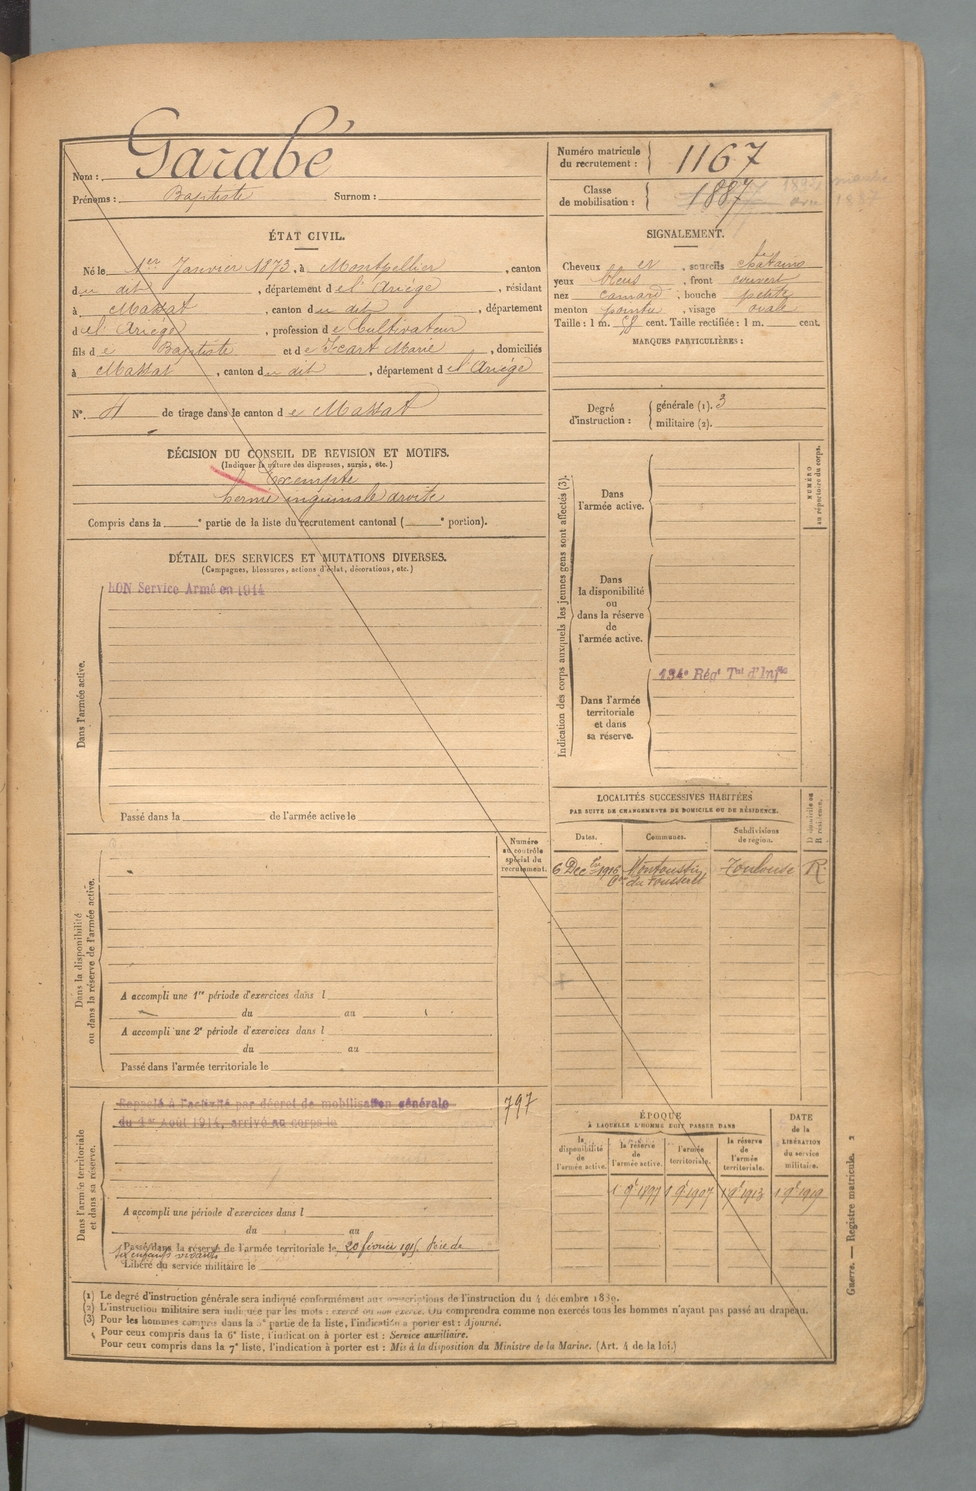 Nom : Garabé
Prénoms : Baptiste Surnom :
Numéro matricule du recrutement : 1167
Classe de mobilisation : 1887
ÉTAT CIVIL.
Né le 1er Janvier 1873, à Montpellier, canton
du dit, département de l'Ariège, résidant
à Massat, canton du dit, département
de l'Ariège, profession de Cultivateur
fils de Baptiste et de Icart Marie, domiciliés
à Massat, canton du dit, département de l'Ariège
N°. 4 de tirage dans le canton de Massat
SIGNALEMENT.
Cheveux et, sourcils châtains
yeux bleus, front couvert
nez camard, bouche petite
menton pointu, visage ovale
Taille : 1 m. 58 cent. Taille rectifiée : 1 m. cent.
MARQUES PARTICULIÈRES :
Degré d'instruction : générale (1). 3
militaire (2).
DÉCISION DU CONSEIL DE REVISION ET MOTIFS.
(Indiquer la nature des dispenses, sursis, etc.)
Exempté
hernie inguinale droite
Compris dans la e partie de la liste du recrutement cantonal ( e portion).
DÉTAIL DES SERVICES ET MUTATIONS DIVERSES.
(Campagnes, blessures, actions d'éclat, décorations, etc.)
Dans l'armée active.
BON Service Armé en 1914
Passé dans la de l'armée active le
Indication des corps auxquels les jeunes gens sont affectés (3).
NUMÉRO au répertoire du corps.
Dans l'armée active.
Dans la disponibilité ou dans la réserve de l'armée active.
Dans l'armée territoriale et dans sa réserve.
134e Régt Tal d'Infie
LOCALITÉS SUCCESSIVES HABITÉES
PAR SUITE DE CHANGEMENTS DE DOMICILE OU DE RÉSIDENCE.
Dates. Communes. Subdivisions de région. D domicile ou R résidence.
6 Décbre 1916 Montoussin Toulouse R
con du Fousseret
Numéro au contrôle spécial du recrutement.
Dans la disponibilité ou dans la réserve de l'armée active.
A accompli une 1re période d'exercices dans l
du au
A accompli une 2e période d'exercices dans l
du au
Passé dans l'armée territoriale le
Dans l'armée territoriale et dans sa réserve.
Rappelé à l'activité par décret de mobilisation générale
du 1er Août 1914, arrivé au corps le
797
A accompli une période d'exercices dans l
du au
Passé dans la réserve de l'armée territoriale le 20 février 1915 Père de
six enfants vivants
Libéré du service militaire le
ÉPOQUE
À LAQUELLE L'HOMME DOIT PASSER DANS
la disponibilité de l'armée active. la réserve de l'armée active. l'armée territoriale. la réserve de l'armée territoriale.
DATE de la LIBÉRATION du service militaire.
1 9e 1897 1 9e 1907 1 9e 1913 1 9e 1919
(1) Le degré d'instruction générale sera indiqué conformément aux prescriptions de l'instruction du 4 décembre 1889.
(2) L'instruction militaire sera indiquée par les mots : exercé ou non exercé. On comprendra comme non exercés tous les hommes n'ayant pas passé au drapeau.
(3) Pour les hommes compris dans la 5e partie de la liste, l'indication à porter est : Ajourné.
Pour ceux compris dans la 6e liste, l'indication à porter est : Service auxiliaire.
Pour ceux compris dans la 7e liste, l'indication à porter est : Mis à la disposition du Ministre de la Marine. (Art. 4 de la loi.)
Guerre. — Registre matricule.